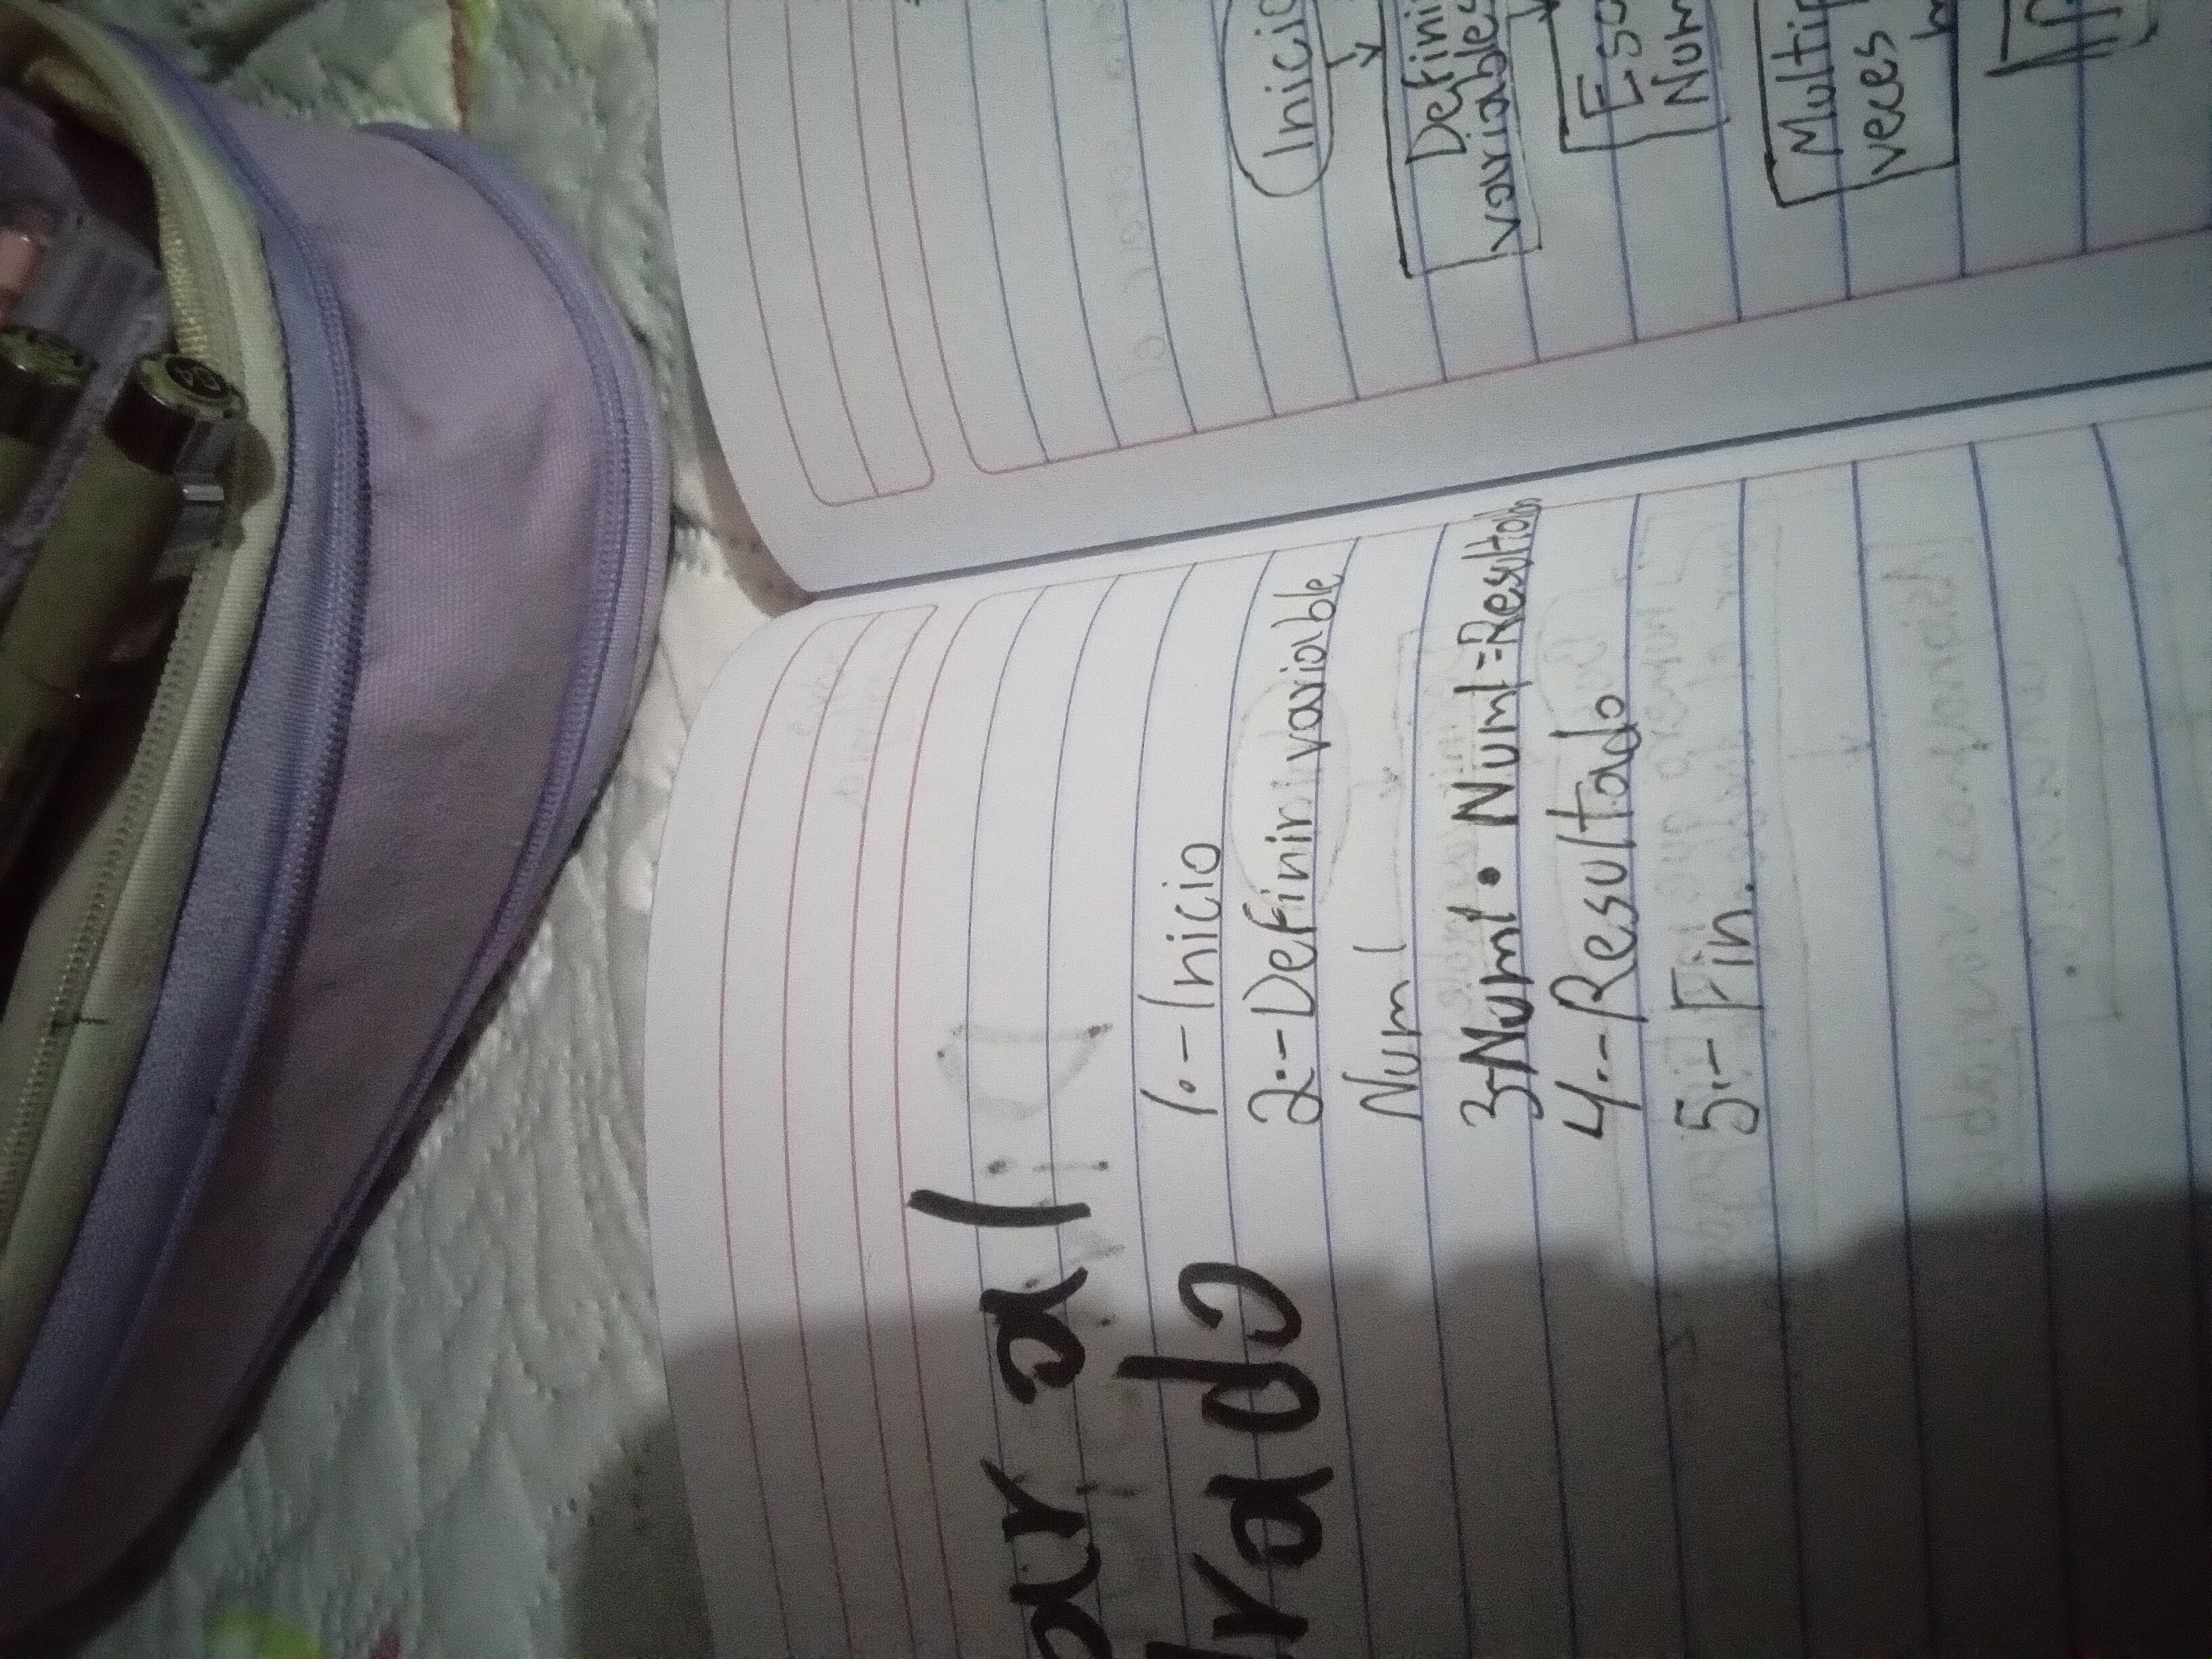 ar al
drado
1.- Inicio
2.- Definir variable
Num 1
3-Num1 • Num1=Resultado
4.- Resultado
5.- Fin.
Inicio
Defini
variables
Esc
Num
Multip
veces